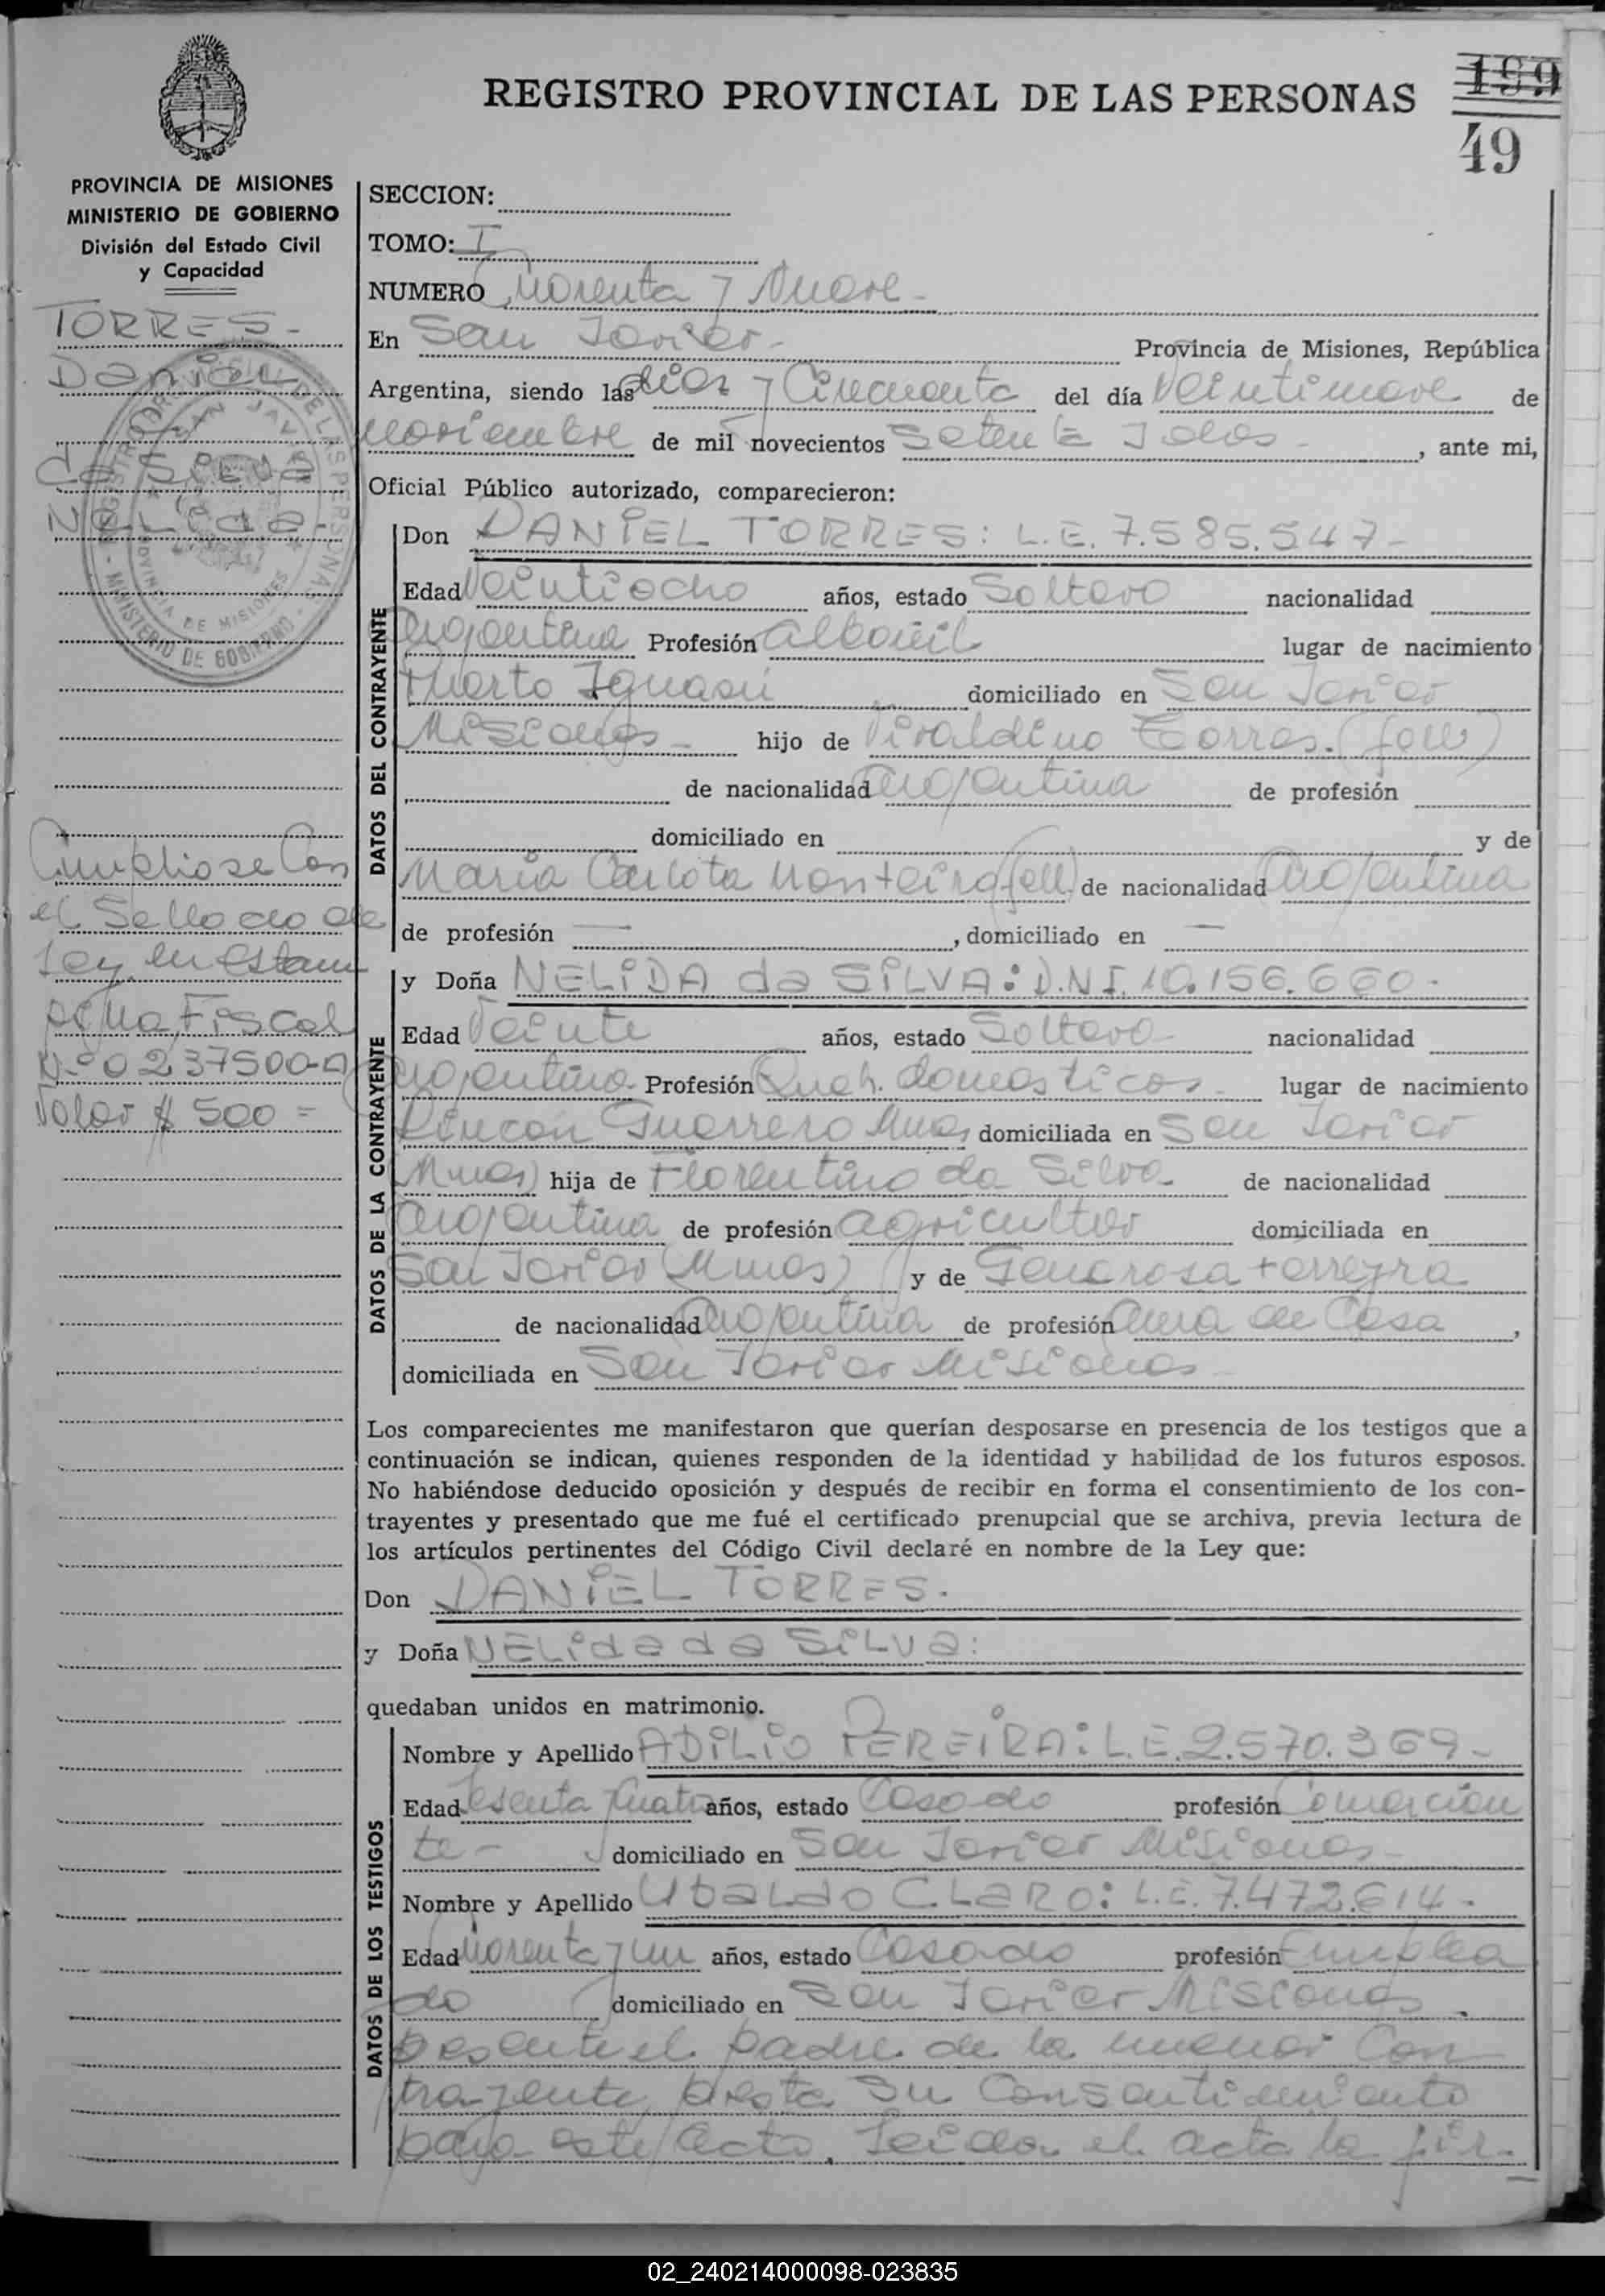 REGISTRO PROVINCIAL DE LAS PERSONAS
199
49
PROVINCIA DE MISIONES
MINISTERIO DE GOBIERNO
División del Estado Civil
y Capacidad
TORRES-
Daniel
da Silva
Nelida-
Cumpliose Con
el Sellado de
Ley en estam
pilla Fiscal
Nº 0237500-A
Valor $ 500=
SECCION:
TOMO: I
NUMERO Cuarenta y Nueve-
En San Javier- Provincia de Misiones, República
Argentina, siendo las diez y Cincuenta del día Veintinueve de
Noviembre de mil novecientos Setenta y dos- , ante mi,
Oficial Público autorizado, comparecieron:
DATOS DEL CONTRAYENTE
Don DANIEL TORRES: L.E. 7.585.547-
Edad Veintiocho años, estado Soltero nacionalidad
Argentina Profesión albañil lugar de nacimiento
Puerto Iguazú domiciliado en San Javier
Misiones- hijo de Viraldino Torres. (fall)
de nacionalidad argentina de profesión
domiciliado en y de
Maria Carlota Monteiro (fall) de nacionalidad Argentina
de profesión — , domiciliado en —
DATOS DE LA CONTRAYENTE
y Doña NELIDA da SILVA: D.N.I. 10.156.660-
Edad Veinte años, estado Soltera- nacionalidad
Argentina- Profesión Queh. domesticos- lugar de nacimiento
Rincón Guerrero Mnes domiciliada en San Javier
(Mnes) hija de Florentino da Silva- de nacionalidad
argentina de profesión agricultor domiciliada en
San Javier (Mnes) y de Generosa Ferreyra
de nacionalidad argentina de profesión Ama de Casa ,
domiciliada en San Javier Misiones-
Los comparecientes me manifestaron que querían desposarse en presencia de los testigos que a
continuación se indican, quienes responden de la identidad y habilidad de los futuros esposos.
No habiéndose deducido oposición y después de recibir en forma el consentimiento de los con-
trayentes y presentado que me fué el certificado prenupcial que se archiva, previa lectura de
los artículos pertinentes del Código Civil declaré en nombre de la Ley que:
Don DANIEL TORRES.
y Doña NELida da SILVa:
quedaban unidos en matrimonio.
DATOS DE LOS TESTIGOS
Nombre y Apellido ADILIO PEREIRA: L.E. 2.570.369-
Edad Sesenta y Cuatro años, estado Casado profesión Comercian
te- domiciliado en San Javier Misiones-
Nombre y Apellido Ubaldo CLaRO: L.E. 7.472.614-
Edad Cuarenta y un años, estado Casado profesión Emplea
do domiciliado en San Javier Misiones-
Presente el padre de la menor Con
trayente, presta su Consentimiento
para este acto. Leida el acta la fir-
02_240214000098-023835